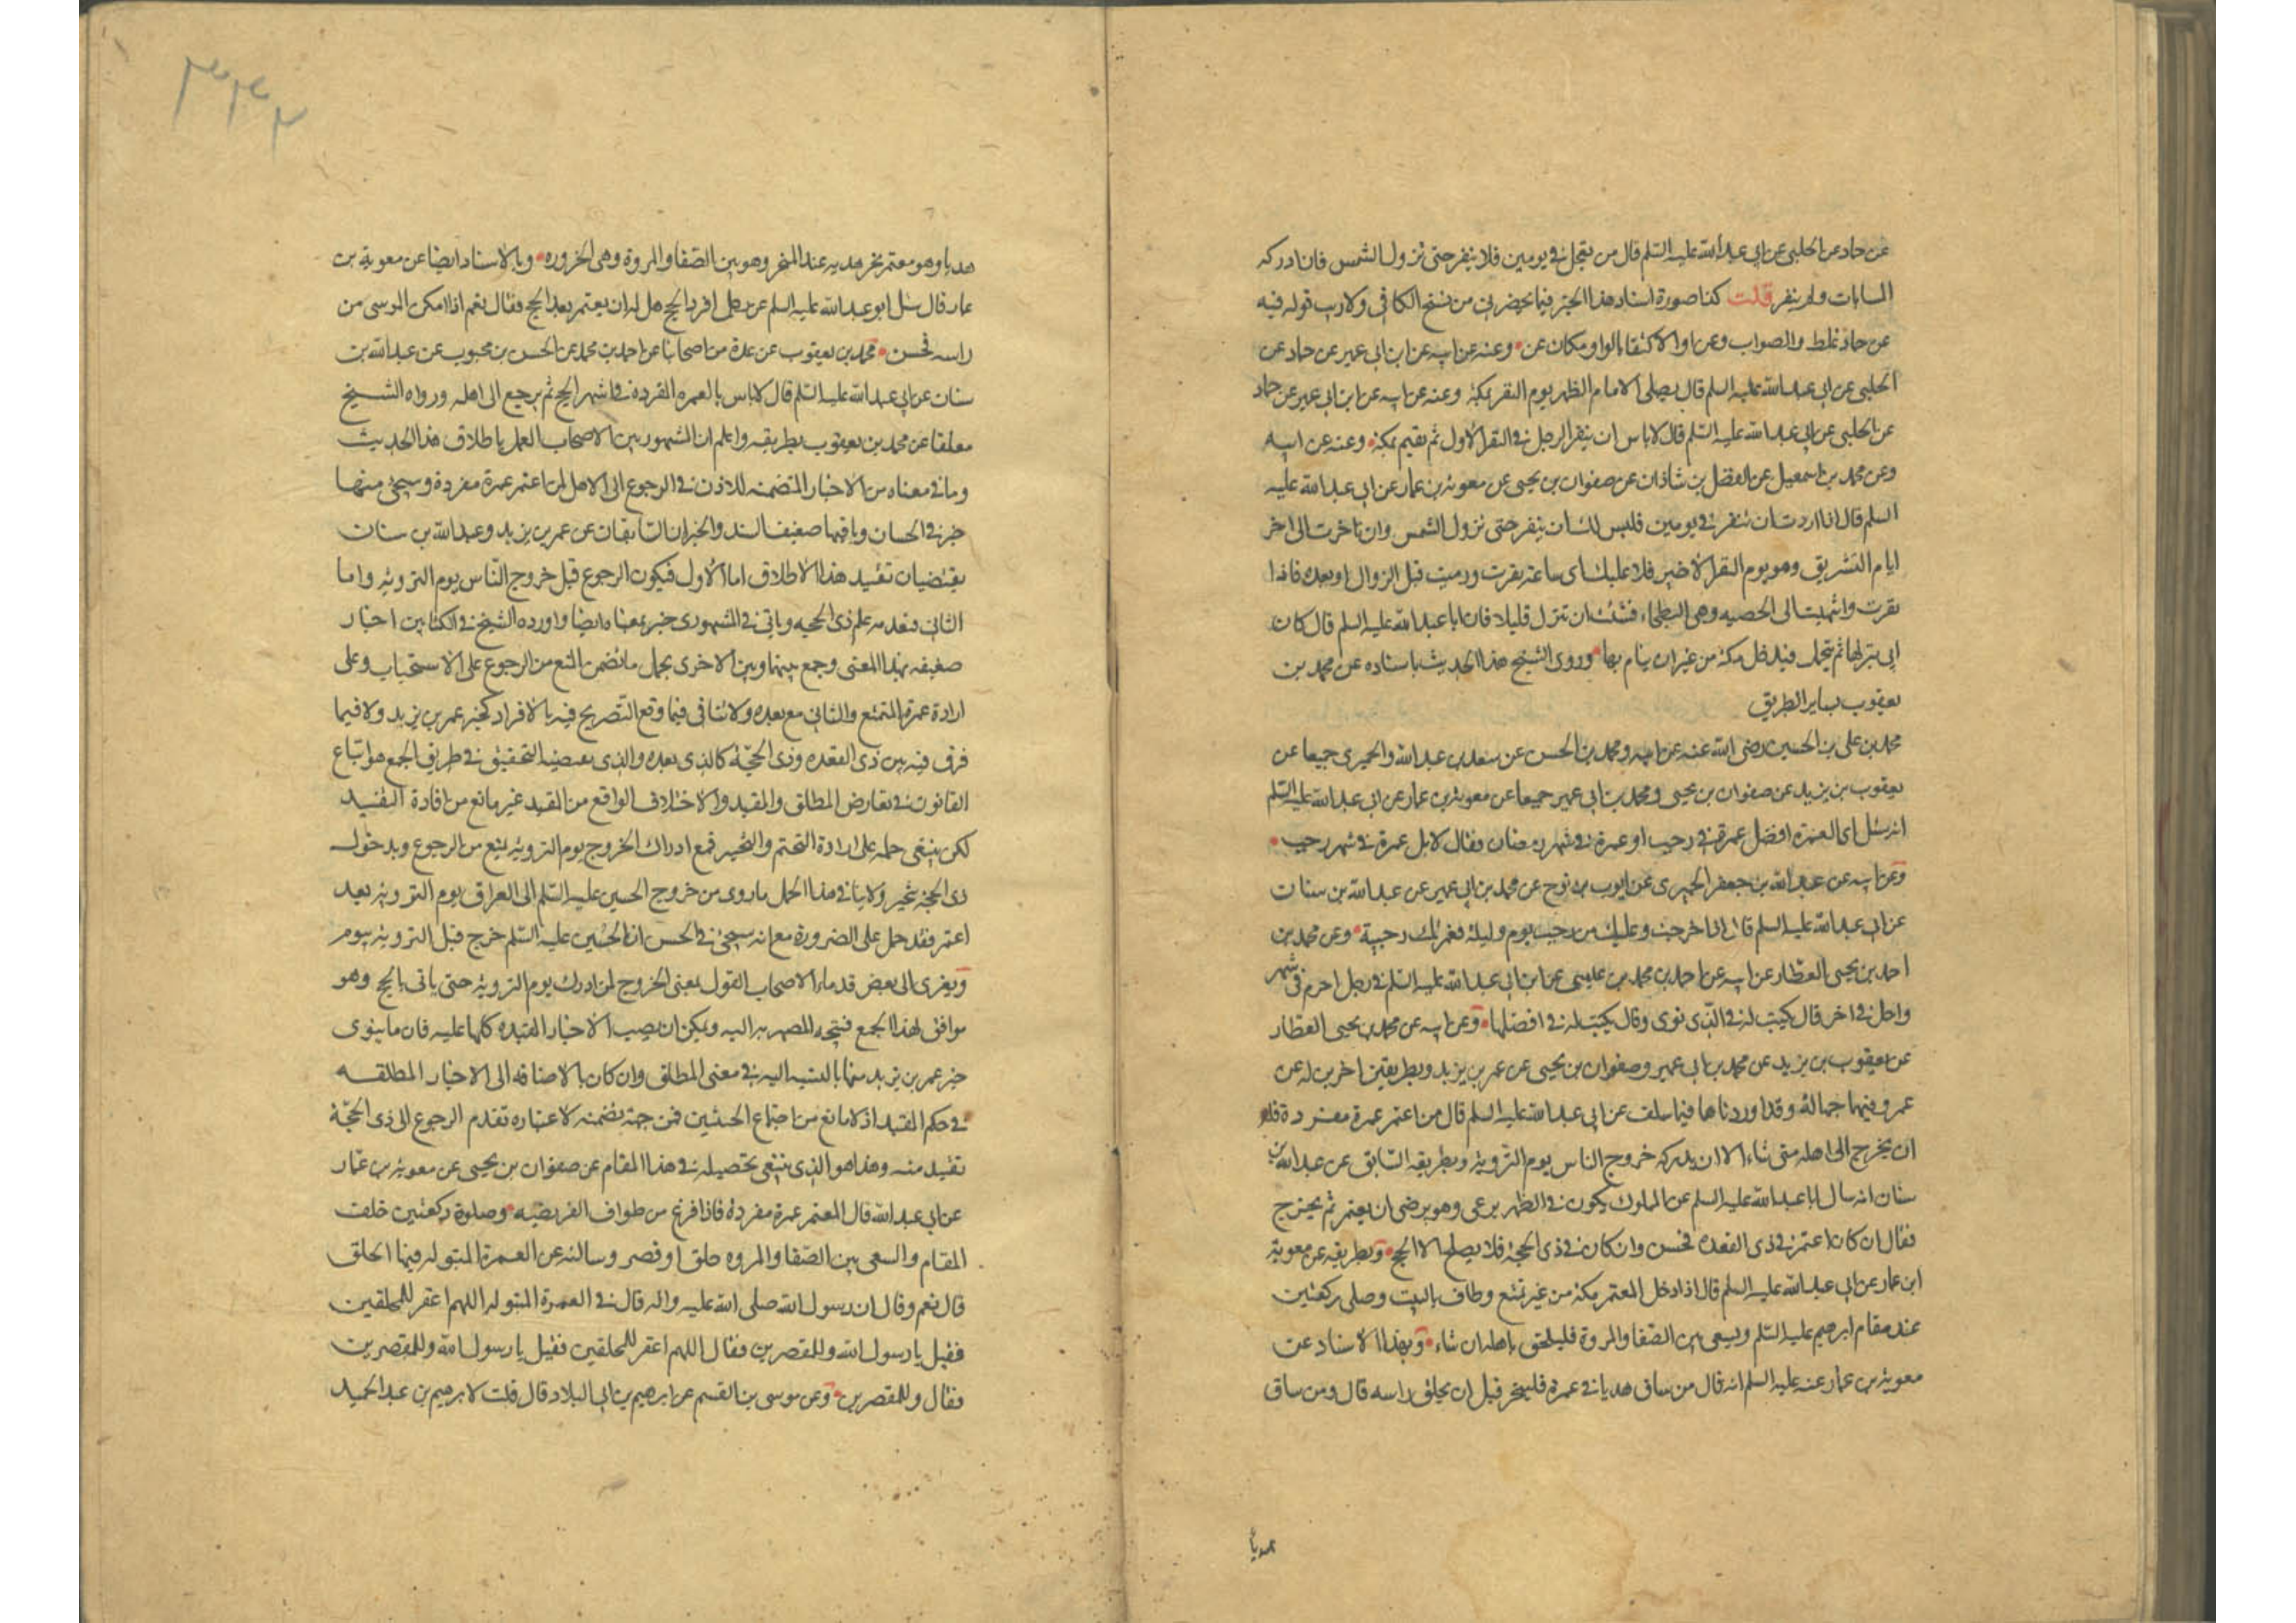 عن حماد عن الحلبي عن ابي عبد الله عليه السلم قال من تعجل في يومين فلا ينفر حتى تزول الشمس فان ادركه
المساء بات ولم ينفر قلت كذا صورة اسناد هذا الخبر فيما يحضرني من نسخ الكافي ولا ريب قوله فيه
عن حماد غلط والصواب وعن او الاكتفاء بالواو مكان عن وعنه عن ابيه عن ابن ابي عمير عن حماد عن
الحلبي عن ابي عبد الله عليه السلم قال يصلي الامام الظهر يوم النفر بمكة وعنه عن ابيه عن ابن ابي عمير عن حماد
عن الحلبي عن ابي عبد الله عليه السلم قال لا باس ان ينفر الرجل في النفر الاول ثم يقيم بمكة وعنه عن ابيه
وعن محمد بن اسمعيل عن الفضل بن شاذان عن صفوان بن يحيى عن معوية بن عمار عن ابي عبد الله عليه
السلم قال اذا اردت ان تنفر في يومين فليس لك ان تنفر حتى تزول الشمس وان تاخرت الى اخر
ايام التشريق وهو يوم النفر الاخير فلا عليك اى ساعة نفرت ورميت قبل الزوال او بعده فاذا
نفرت وانتهيت الى الحصبه وهى البطحاء فشئت ان تنزل قليلا فان ابا عبد الله عليه السلم قال كان
ابي ينزلها ثم يتحمل فيدخل مكة من غير ان ينام بها وروى الشيخ هذا الحديث باسناده عن محمد بن
يعقوب بساير الطريق
محمد بن علي بن الحسين رضى الله عنه عن ابيه ومحمد بن الحسن عن سعد بن عبد الله والحميرى جميعا عن
يعقوب بن يزيد عن صفوان بن يحيى ومحمد بن ابي عمير جميعا عن معوية بن عمار عن ابي عبد الله عليه السلم
انه سئل اى العمرة افضل عمرة في رجب او عمرة في شهر رمضان فقال لا بل عمرة في شهر رجب
وعن ابيه عن عبد الله بن جعفر الحميرى عن ايوب بن نوح عن محمد بن ابي عمير عن عبد الله بن سنان
عن ابي عبد الله عليه السلم قال اذا احرمت وعليك من رجب يوم وليلة فعمرتك رجبية وعن محمد بن
احمد بن يحيى العطار عن ابيه عن احمد بن محمد بن عيسى عن ابن ابي عبد الله عليه السلم في رجل احرم في شهر
واحل في اخر قال يكتب له في الذى نوى وقال يكتب له في افضلها وعن ابيه عن محمد بن يحيى العطار
عن يعقوب بن يزيد عن محمد بن ابي عمير وصفوان بن يحيى عن عمر بن يزيد وبطريقين اخرين له عن
عمر وفيهما جهالة وقد اوردناها فيما سلف عن ابي عبد الله عليه السلم قال من اعتمر عمرة مفردة فله
ان يخرج الى اهله متى شاء الا ان يدركه خروج الناس يوم التروية وبطريقه السابق عن عبد الله بن
سنان انه سال ابا عبد الله عليه السلم عن المملوك يكون في الظهر يرعى وهو يرضى ان يعتمر ثم يخرج
فقال ان كان اعتمر في ذى القعده فحسن وان كان في ذى الحجة فلا يصلح الا الحج وبطريقه عن معوية
ابن عمار عن ابي عبد الله عليه السلم قال اذا دخل المعتمر مكة من غير تمتع وطاف بالبيت وصلى ركعتين
عند مقام ابرهيم عليه السلم وسعى بين الصفا والمروة فليلحق باهله ان شاء وبهذا الاسناد عن
معوية بن عمار عنه عليه السلم انه قال من ساق هديا في عمرة فلينحر قبل ان يحلق راسه قال ومن ساق
هديا
هديا وهو معتمر نحر هديه عند المنحر وهو بين الصفا والمروة وهى الحزوره وبالاسناد ايضا عن معوية بن
عمار قال سئل ابو عبد الله عليه السلم عن رجل افرد الحج هل له ان يعتمر بعد الحج فقال نعم اذا امكن الموسى من
راسه فحسن محمد بن يعقوب عن عدة من اصحابنا عن احمد بن محمد عن الحسن بن محبوب عن عبد الله بن
سنان عن ابي عبد الله عليه السلم قال لا باس بالعمره المفردة في اشهر الحج ثم يرجع الى اهله ورواه الشيخ
معلقا عن محمد بن يعقوب بطريقه واعلم ان المشهور بين الاصحاب العمل باطلاق هذا الحديث
وما في معناه من الاخبار المتضمنه للاذن في الرجوع الى الاهل لمن اعتمر عمرة مفردة وسيجئ منها
خبر في الحسان وباقيها ضعيف السند والخبران السابقان عن عمر بن يزيد وعبد الله بن سنان
يقتضيان تقييد هذا الاطلاق اما الاول فبكون الرجوع قبل خروج الناس يوم التروية واما
الثاني فبعدمه على ذى الحجه وياتي في المشهورى خبر بمعناه ايضا واورده الشيخ في الكتابين اخبار
ضعيفه بهذا المعنى وجمع بينها وبين الاخرى بحمل ما تضمن المنع من الرجوع على الاستحباب وعلى
ارادة عمرة التمتع والثاني مع بعده ولا يتاتى فيما وقع التصريح فيه بالافراد كخبر عمر بن يزيد ولا فيما
فرق فيه بين ذى القعده وذى الحجة كالذى بعده والذى يقتضيه التحقيق في طريق الجمع هو اتباع
القانون في تعارض المطلق والمقيد والاختلاف الواقع من المقيد غير مانع من افادة التقييد
لكن ينبغى حمله على ارادة التحتم والتخيير فمع ادراك الخروج يوم التروية يمنع من الرجوع وبدخول
ذى الحجة يخير ولا ينافي هذا الحمل ما روى من خروج الحسين عليه السلم الى العراق يوم التروية بعد
اعتمر فقد حمل على الضرورة مع انه سيجئ في الحسن ان الحسين عليه السلم خرج قبل التروية بيوم
ويعزى الى بعض قدماء الاصحاب القول بمعنى الخروج لمن ادرك يوم التروية حتى ياتى بالحج وهو
موافق لهذا الجمع فيتجه المصير اليه ويمكن ان يصيب الاخبار المقيده كلها عليه فان ما ينوى
خبر عمر بن يزيد منها بالنسبه اليه في معنى المطلق وان كان بالاضافه الى الاخبار المطلقه
في حكم المقيد اذ لا مانع من اجتماع الحيثيتين فمن جهة تضمنه لاعتباره تقدم الرجوع الى ذى الحجة
تقييد منه وهذا هو الذى ينبغى تحصيله في هذا المقام عن صفوان بن يحيى عن معوية بن عمار
عن ابي عبد الله قال المعتمر عمرة مفردة فاذا فرغ من طواف الفريضه وصلوة ركعتين خلف
المقام والسعى بين الصفا والمروه حلق او قصر وسالته عن العمرة المبتوله فيها الحلق
قال نعم وقال ان رسول الله صلى الله عليه واله قال في العمرة المبتوله اللهم اغفر للمحلقين
فقيل يا رسول الله وللمقصرين فقال اللهم اغفر للمحلقين فقيل يا رسول الله وللمقصرين
فقال وللمقصرين وعن موسى بن القسم عن ابرهيم بن ابي البلاد قال قلت لابرهيم بن عبد الحميد